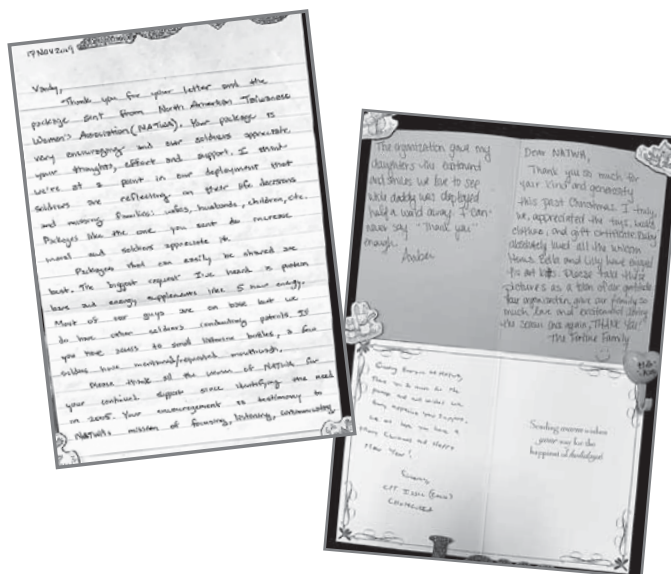 17 NOV 2009
Vandy,
Thank you for your letter and the
package sent from North American Taiwanese
Women's Association (NATWA). Your package is
very encouraging and our soldiers appreciate
your thoughts, efforts and support. I think
we're at a point in our deployment that
soldiers are reflecting on their life decisions
and missing families: wives, husbands, children, etc.
Packages like the one you sent do increase
moral and soldiers appreciate it.
Packages that can easily be shared are
best. The biggest request I've heard is protein
bars and energy supplements like 5 hour energy.
Most of our guys are on base but we
do have other soldiers conducting patrols. If
you have access to small listerine bottles, a few
soldiers have mentioned/requested mouthwash.
Please thank all the women of NATWA for
your continued support since identifying the need
in 2005. Your encouragement is testimony to
NATWA's mission of focusing, listening, communicating,
The organization gave my
daughters the excitement
and smiles we love to see
while daddy was deployed
half a world away. I can
never say "Thank you"
enough.
Amber
Dear NATWA,
Thank you so much for
your kind and generosity
this past Christmas. I truly,
we, appreciated the toys, books,
clothes, and gift certificate. Bailey
absolutely loved all the unicorn
items. Bella and Lilly have enjoyed
the art kits. Please take these
pictures as a token of our gratitude.
Your organization gave our family so
much love and excitement during
the season. Once again, THANK YOU!
The Fortune Family
Thank you so much for the
package and well wishes. We
truly appreciate your support.
We all hope you have a
Merry Christmas and Happy
New Year!
Sincerely
CPT
Sending warm wishes
your way for the
happiest of holidays!